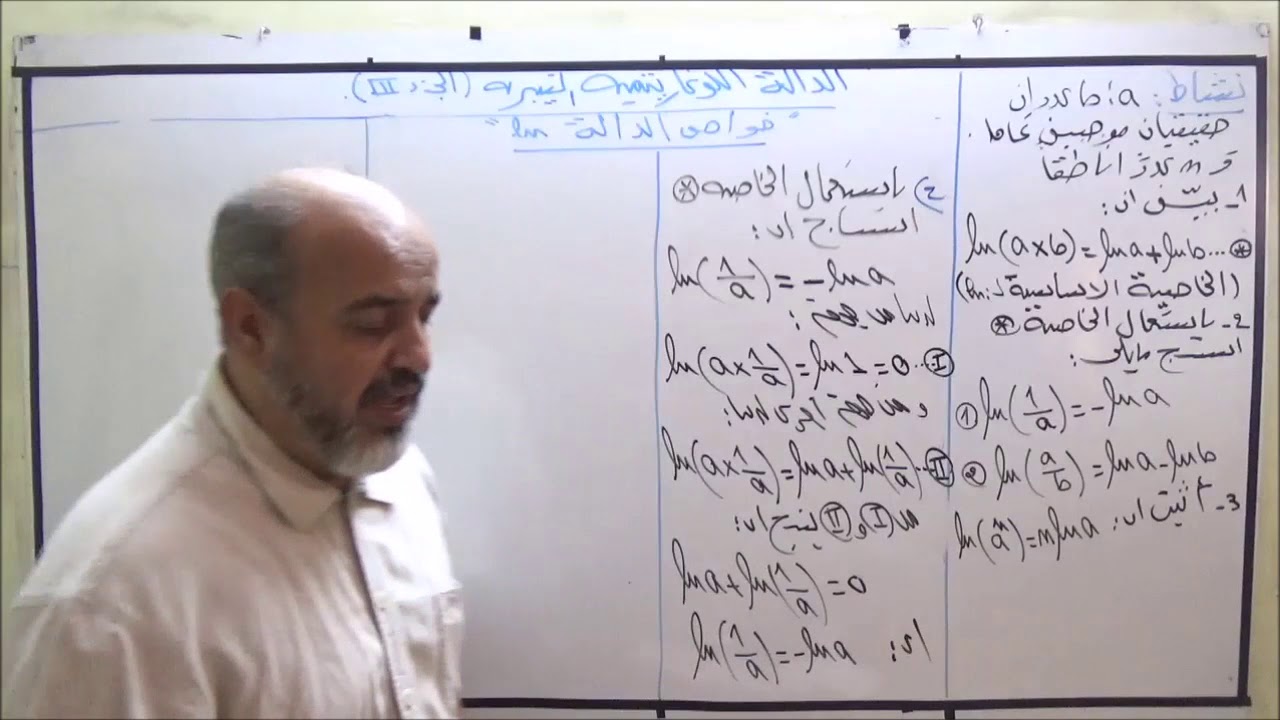 الدالة اللوغاريتمية النيبيرية (الجزء III).
"خواص الدالة ln"
نشاط: a و b عددان
حقيقيان موجبين تماما.
و n عددا ناطقا
1- بيّن ان:
ln(a×b)=lna+lnb...⊛
(الخاصية الاساسية لـ: ln)
2- باستعمال الخاصية ⊛
استنتج مايلي:
① ln(1/a)=-lna
② ln(a/b)=lna-lnb
3- أثبت ان: ln(aⁿ)=nlna
2) باستعمال الخاصية ⊛
استنتاج ان:
ln(1/a)=-lna
لدينا من جهة:
ln(a×1/a)=ln1=0...Ⓘ
ومن جهة اخرى لدينا:
ln(a×1/a)=lna+ln(1/a)...Ⅱ
من Ⓘ و Ⅱ ينتج ان:
lna+ln(1/a)=0
اي: ln(1/a)=-lna